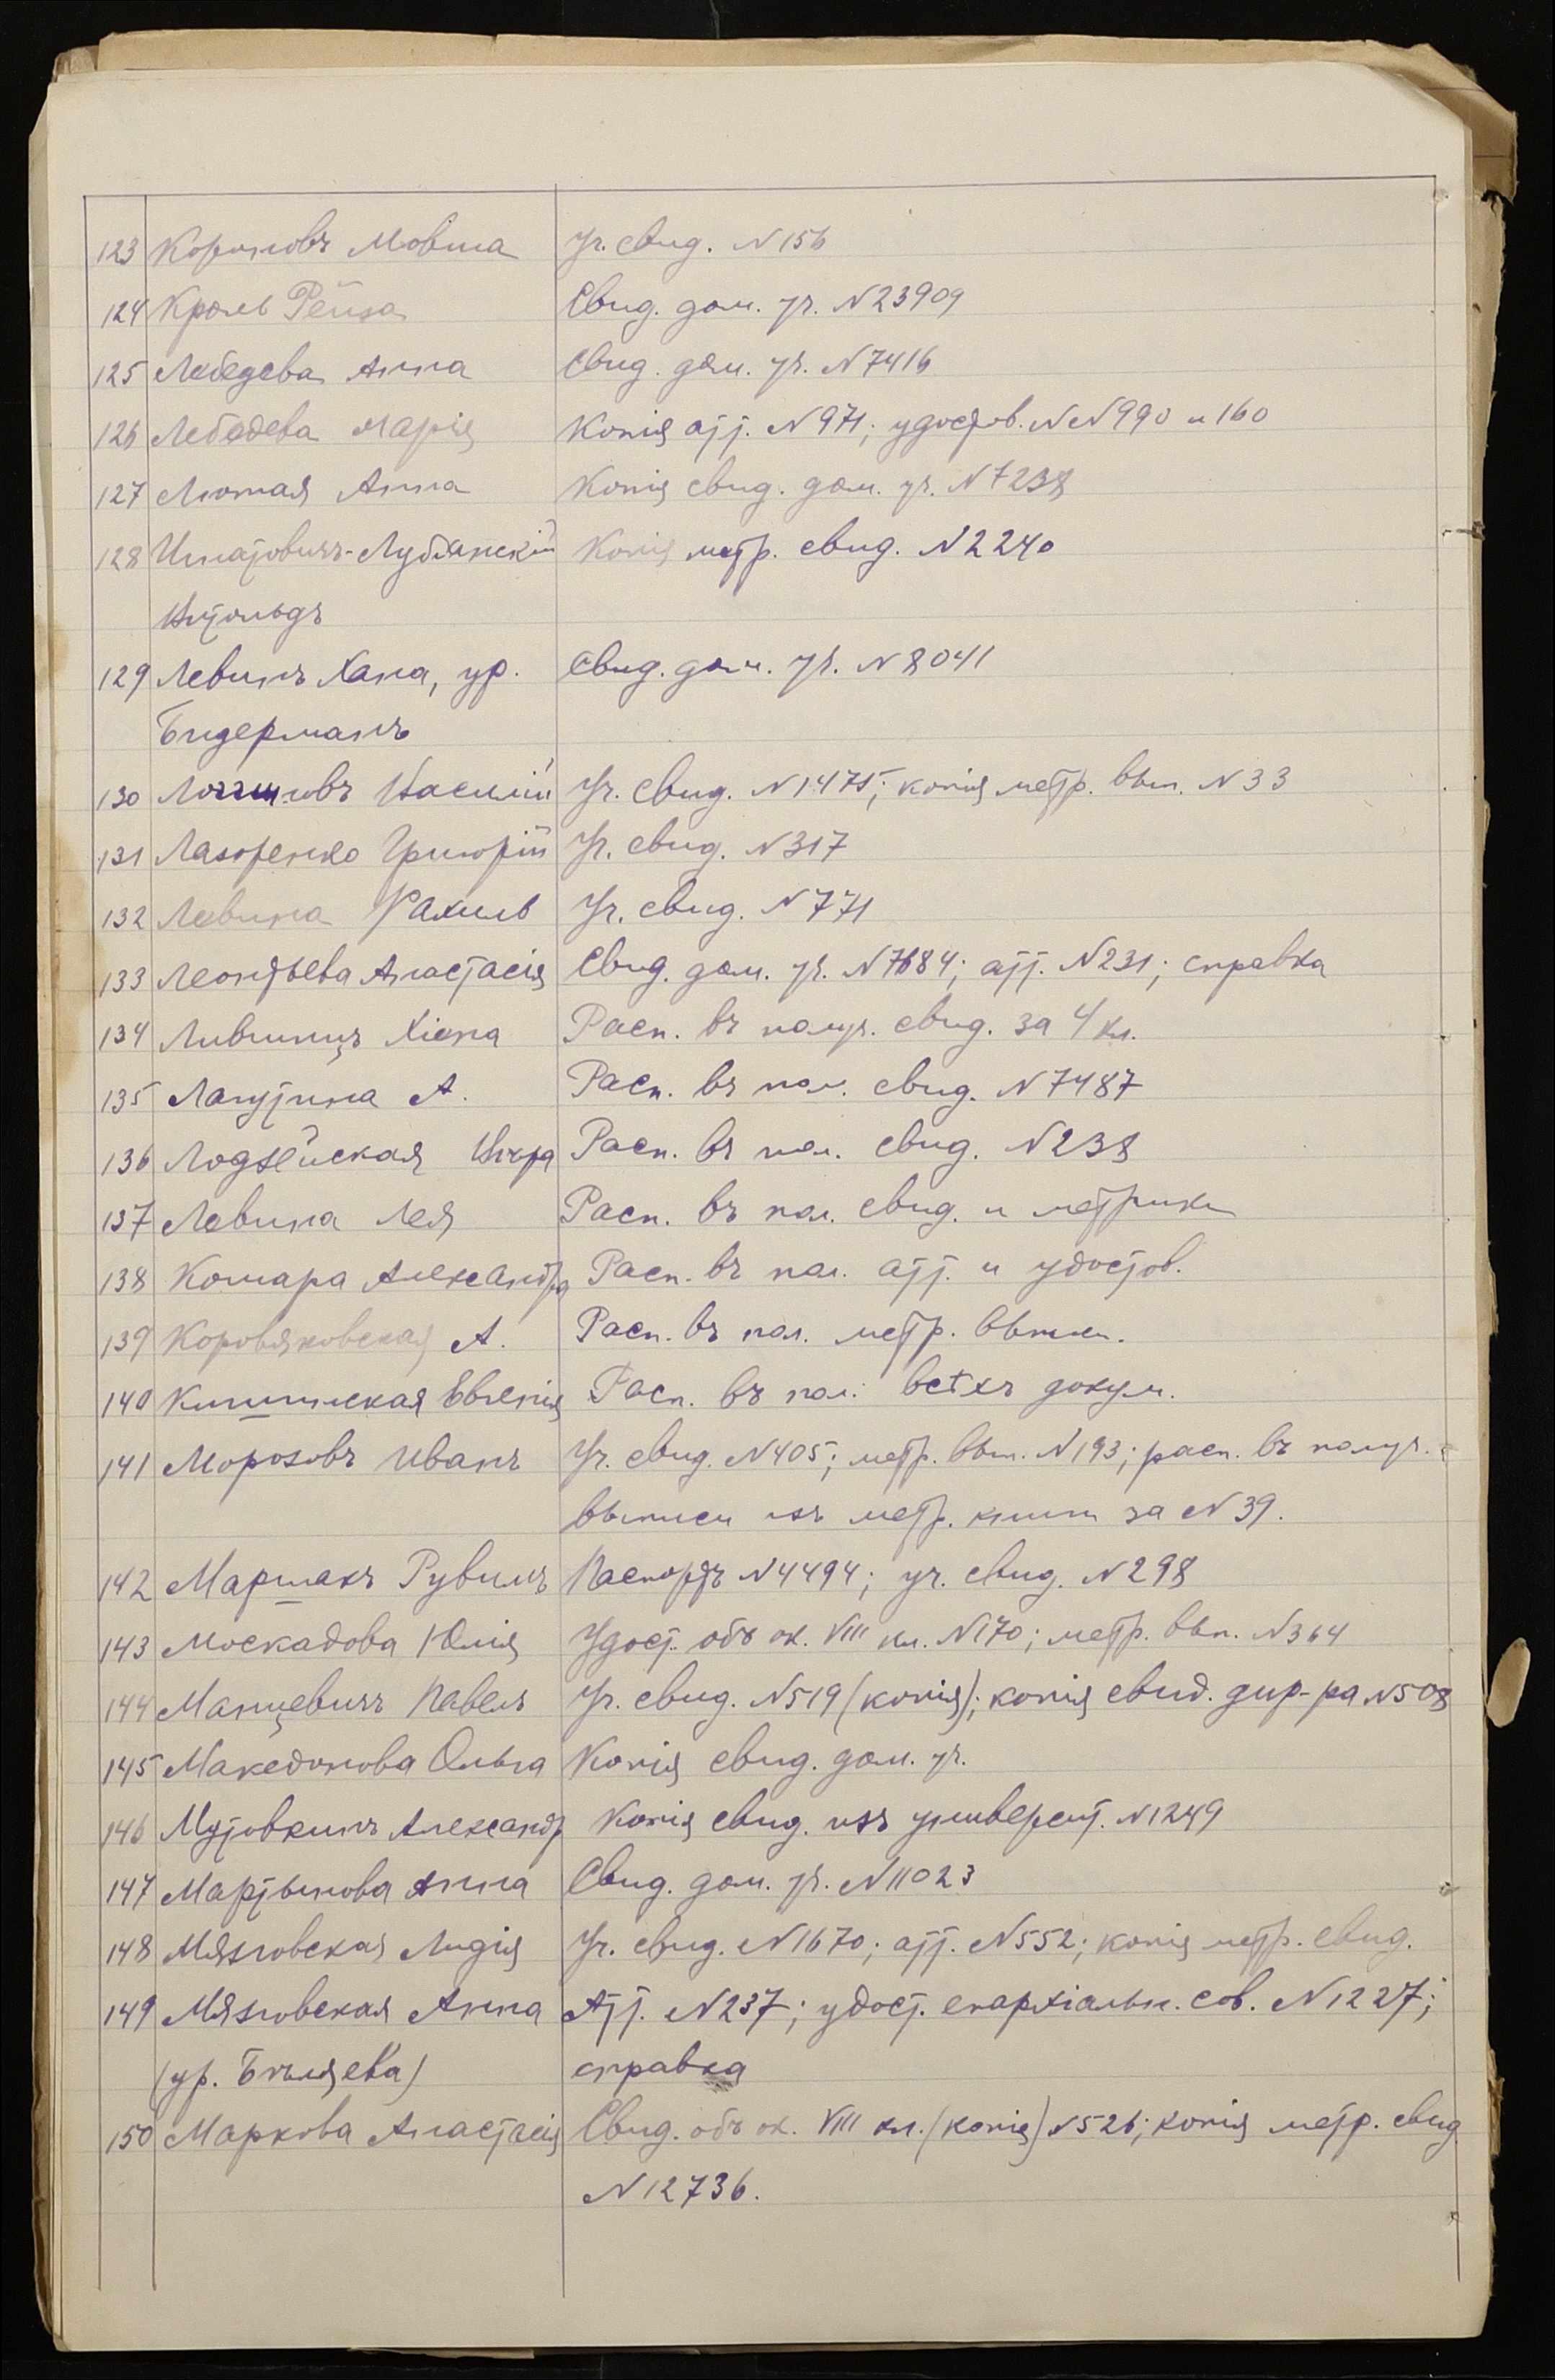 123 Короновъ Мовша Уч. свид. N156
124 Кроль Рейза Свид. дом. уч. N23909
125 Лебедева Анна Свид. дом. уч. N7416
126 Лебедева Марія Копія атт. N971; удостов. NN990 и 160
127 Лютая Анна Копія свид. дом. уч. N7238
128 Игнатовичъ-Лублянскій Копія метр. свид. N2240
Витольдъ
129 Левинъ Хана, ур. Свид. дом. уч. N8041
Бидерманъ
130 Василій Уч. свид. N1475; копія метр. вып. N33
131 Лазоренко Григорій Уч. свид. N317
132 Левина Рахиль Уч. свид. N771
133 Леонтьева Анастасія Свид. дом. уч. N7684; атт. N231; справка
134 Лившицъ Хіена Расп. въ получ. свид. за 4 кл.
135 Лагутина А. Расп. въ пол. свид. N7487
136 Лодзейская Вѣра Расп. въ пол. свид. N238
137 Левина Лея Расп. въ пол. свид. и метрики
138 Комара Александра Расп. въ пол. атт. и удостов.
139 Коровяковская А. Расп. въ пол. метр. выписи.
140 Евгенія Расп. въ пол. всѣхъ докум.
141 Морозовъ Иванъ Уч. свид. N405; метр. вып. N193; расп. въ получ.
выписи изъ метр. книги за N39.
142 Маршакъ Рувимъ Паспортъ N4494; уч. свид. N298
143 Москадова Юлія Удост. объ ок. VIII кл. N170; метр. вып. N364
144 Манцевичъ Павелъ Уч. свид. N519 (копія); копія свид. дир-ра N508
145 Македонова Ольга Копія свид. дом. уч.
146 Мутовкинъ Александр Копія свид. изъ университ. N1249
147 Мартынова Анна Свид. дом. уч. N11023
148 Мязговская Лидія Уч. свид. N1670; атт. N552; копія метр. свид.
149 Мязговская Анна Атт. N237; удост. епархіальн. сов. N1227;
(ур. Бѣляева) справка
150 Маркова Анастасія Свид. объ ок. VIII кл. (копія) N526; копія метр. свид
N12736.